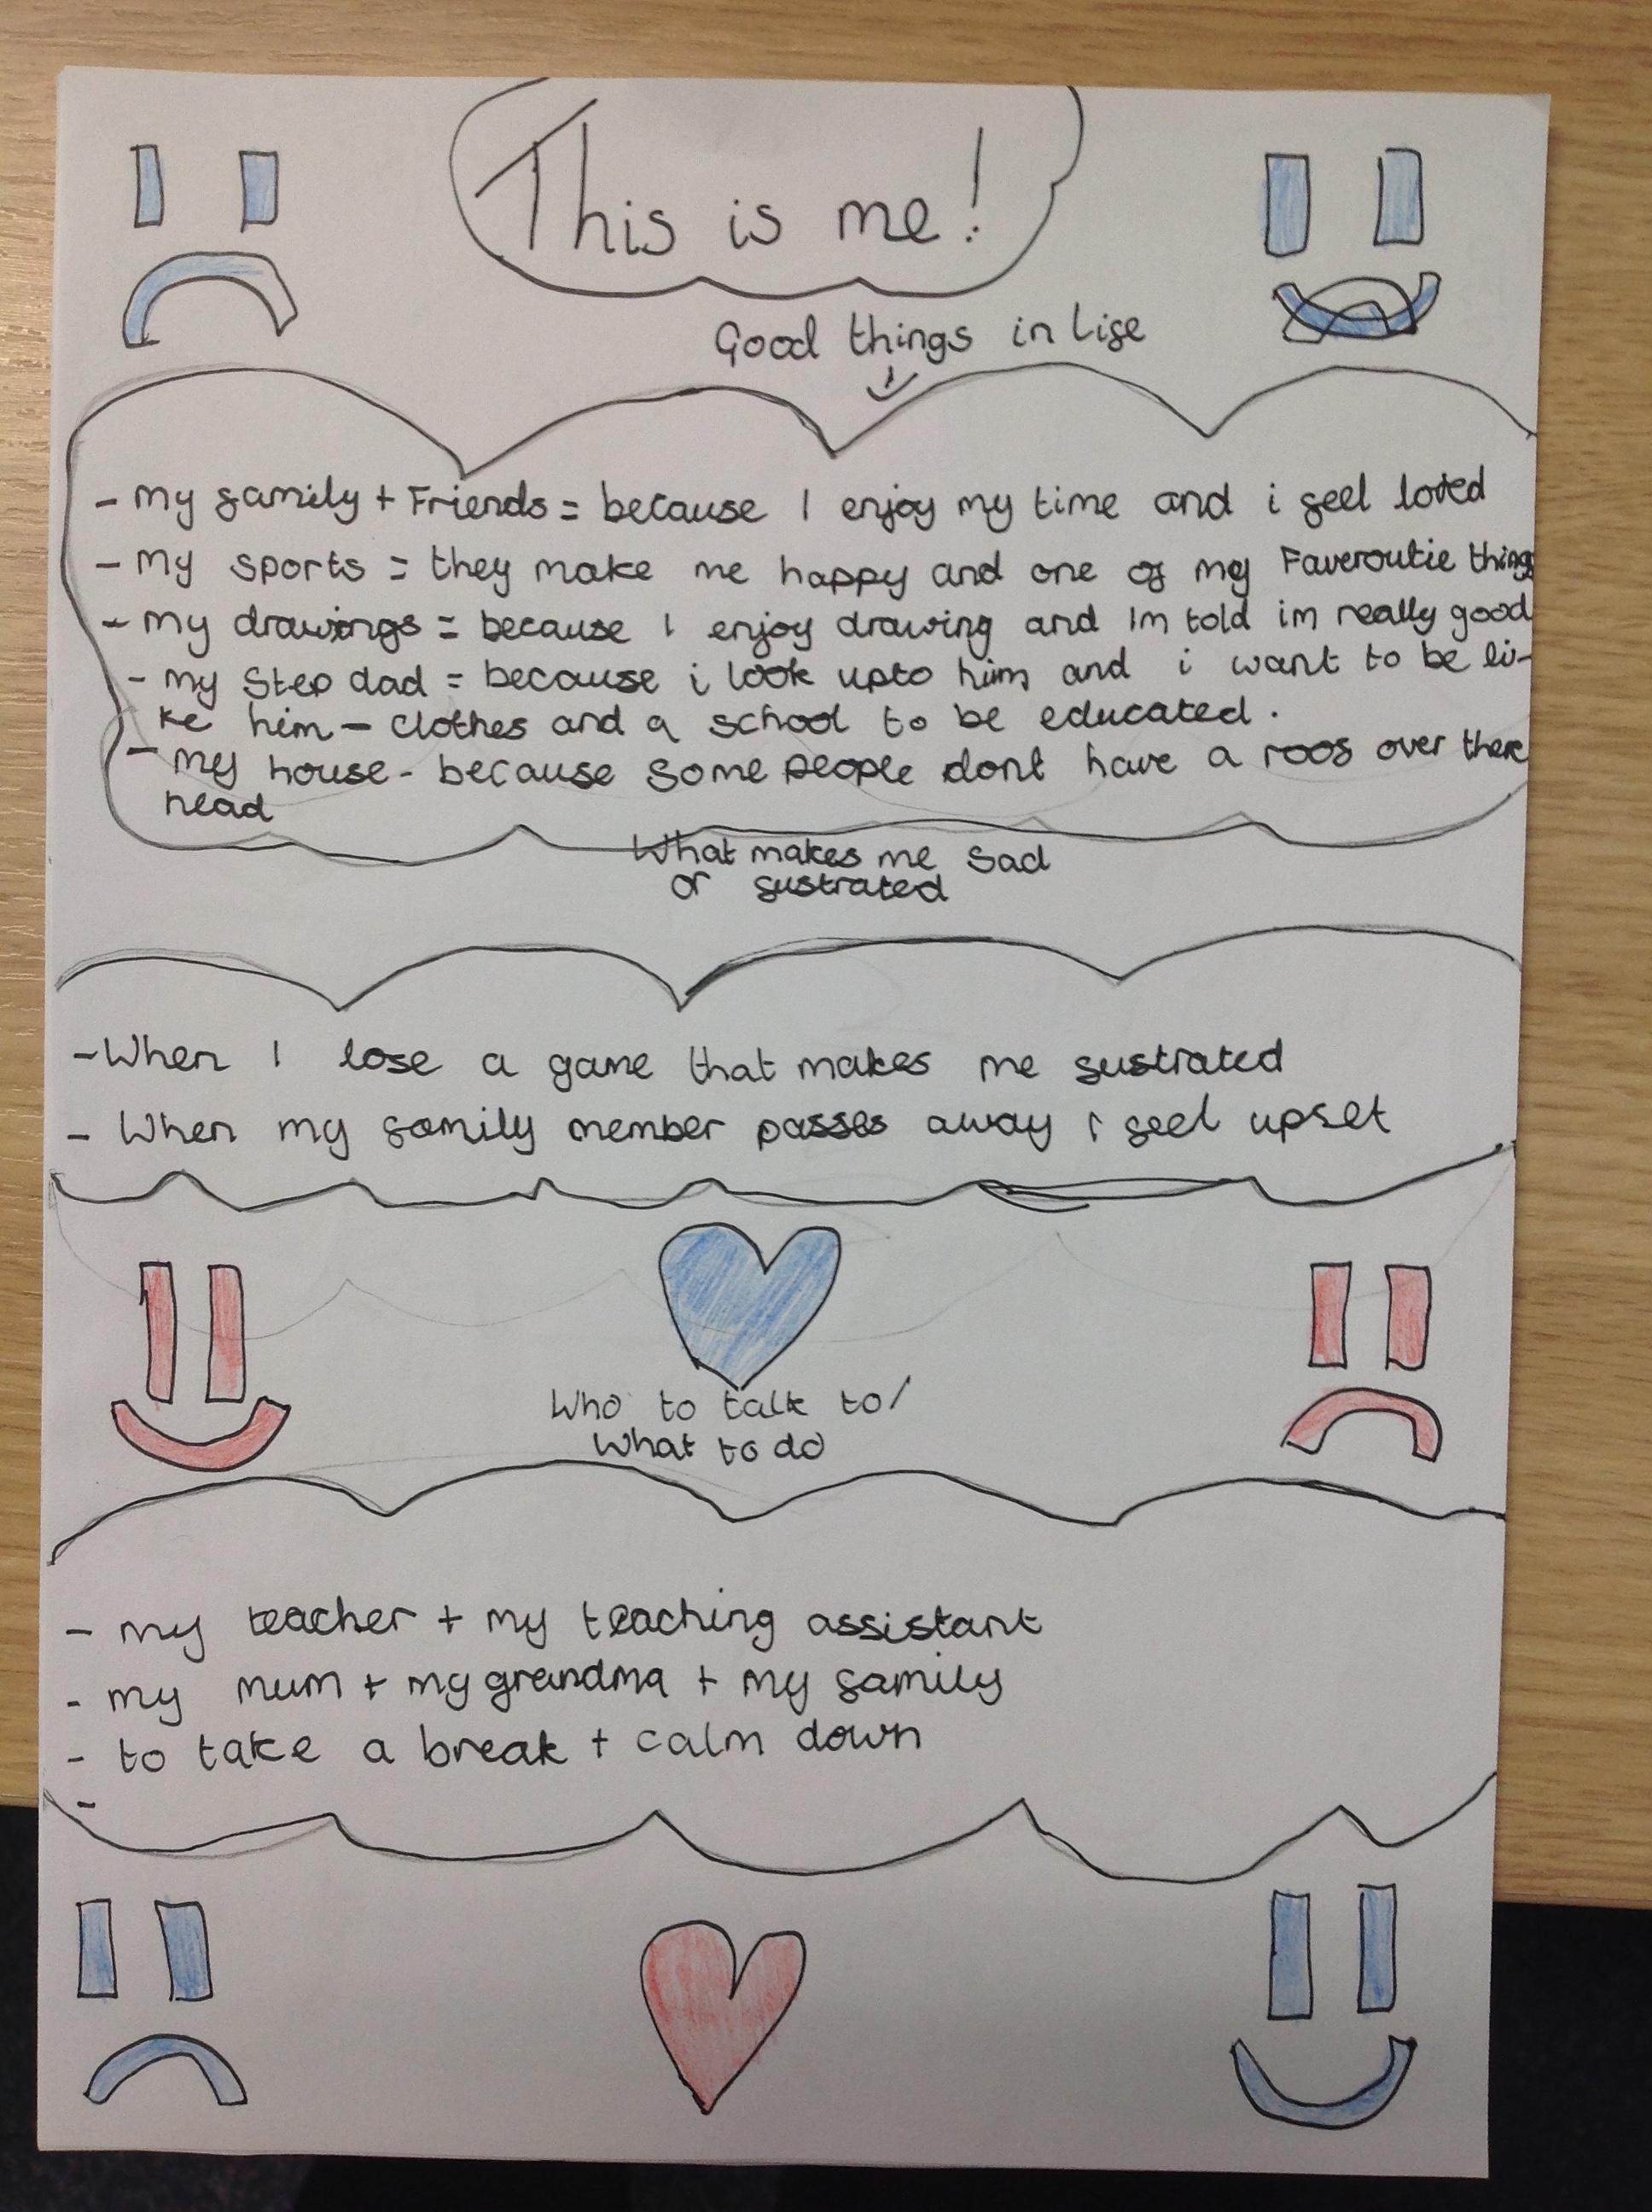 This is me!
Good things in life
- my family + Friends = because I enjoy my time and i feel loved
- my sports = they make me happy and one of my Faveroutie things
- my drawings = because I enjoy drawing and Im told im really good
- my Step dad = because i look upto him and i want to be li-
ke him - clothes and a school to be educated.
- my house - because some people dont have a roof over there
head
What makes me sad
or fustrated
- When I lose a game that makes me fustrated
- When my family member passes away i feel upset
Who to talk to/
What to do
- my teacher + my teaching assistant
- my mum + my grandma + my family
- to take a break + calm down
-